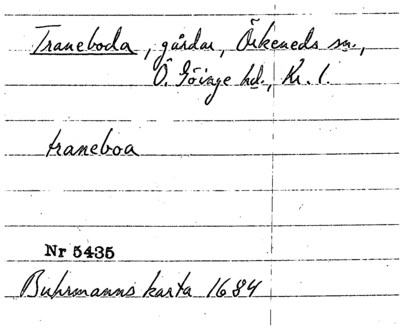 Traneboda, gårdar, Örkeneds sn.,
Ö. Göinge hd., Kr. l.
traneboa
Nr 5435
Buhrmanns karta 1684